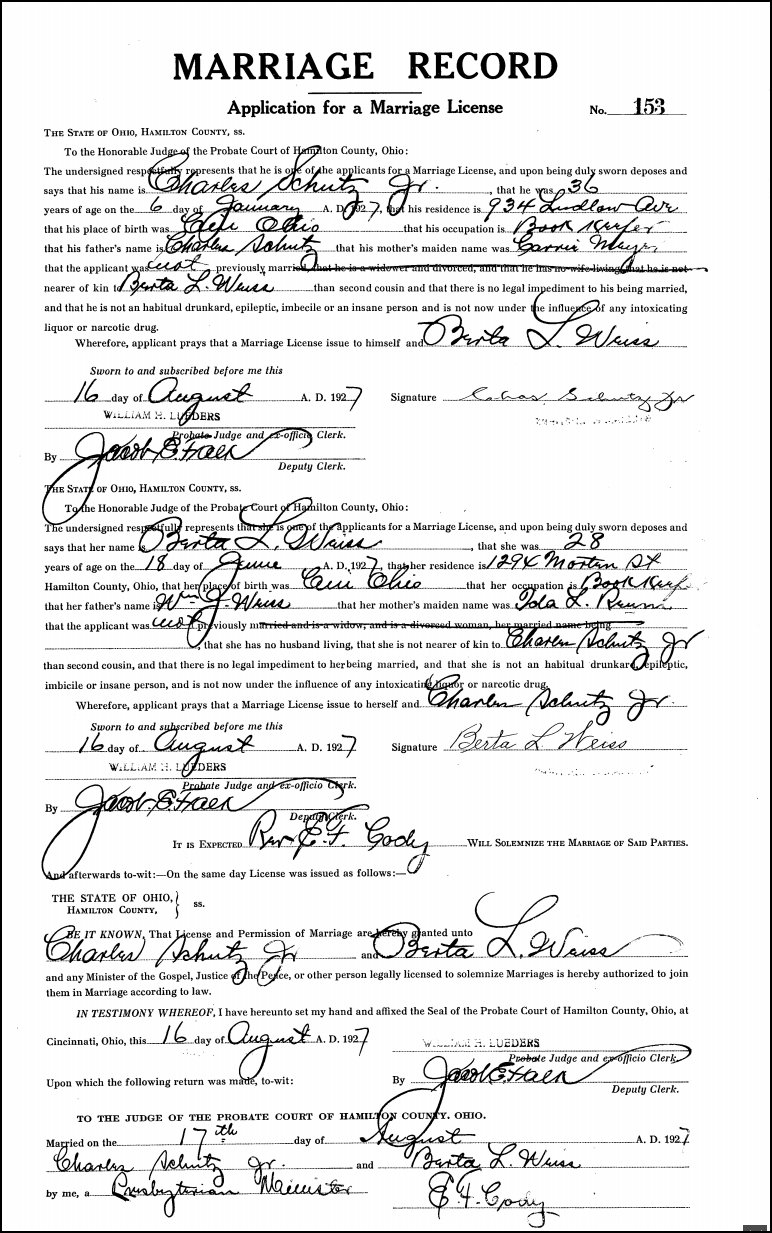 MARRIAGE RECORD
Application for a Marriage License
No. 153
THE STATE OF OHIO, HAMILTON COUNTY, ss.
To the Honorable Judge of the Probate Court of Hamilton County, Ohio:
The undersigned respectfully represents that he is one of the applicants for a Marriage License, and upon being duly sworn deposes and
says that his name is Charles Schutz Jr. , that he was 36
years of age on the 6 day of January A. D. 1927, that his residence is 934 Ludlow Ave
that his place of birth was Cin Ohio that his occupation is Book Keeper
that his father's name is Charles Schutz that his mother's maiden name was Carrie Meyer
that the applicant was not previously married, that he is a widower and divorced, and that he has no wife living, that he is not
nearer of kin to Berta L. Weiss than second cousin and that there is no legal impediment to his being married,
and that he is not an habitual drunkard, epileptic, imbecile or an insane person and is not now under the influence of any intoxicating
liquor or narcotic drug.
Wherefore, applicant prays that a Marriage License issue to himself and Berta L. Weiss
Sworn to and subscribed before me this
16 day of August A. D. 1927 Signature Chas. Schutz Jr
WILLIAM H. LUEDERS
Probate Judge and ex-officio Clerk.
By Jacob E. Faen
Deputy Clerk.
THE STATE OF OHIO, HAMILTON COUNTY, ss.
To the Honorable Judge of the Probate Court of Hamilton County, Ohio:
The undersigned respectfully represents that she is one of the applicants for a Marriage License, and upon being duly sworn deposes and
says that her name is Berta L. Weiss , that she was 28
years of age on the 18 day of June A. D. 1927, that her residence is 1294 Morten St
Hamilton County, Ohio, that her place of birth was Cin Ohio that her occupation is Book Keep
that her father's name is Wm J. Weiss that her mother's maiden name was Ida L.
that the applicant was not previously married and is a widow, and is a divorced woman, her married name being
, that she has no husband living, that she is not nearer of kin to Charles Schutz Jr
than second cousin, and that there is no legal impediment to her being married, and that she is not an habitual drunkard, epileptic,
imbicile or insane person, and is not now under the influence of any intoxicating liquor or narcotic drug.
Wherefore, applicant prays that a Marriage License issue to herself and Charles Schutz Jr.
Sworn to and subscribed before me this
16 day of August A. D. 1927 Signature Berta L. Weiss
WILLIAM H. LUEDERS
Probate Judge and ex-officio Clerk.
By Jacob E. Faen
Deputy Clerk.
IT IS EXPECTED Rev E. F. Cody WILL SOLEMNIZE THE MARRIAGE OF SAID PARTIES.
And afterwards to-wit:—On the same day License was issued as follows:—
THE STATE OF OHIO,
HAMILTON COUNTY, } ss.
BE IT KNOWN, That License and Permission of Marriage are hereby granted unto
Charles Schutz Jr and Berta L. Weiss
and any Minister of the Gospel, Justice of the Peace, or other person legally licensed to solemnize Marriages is hereby authorized to join
them in Marriage according to law.
IN TESTIMONY WHEREOF, I have hereunto set my hand and affixed the Seal of the Probate Court of Hamilton County, Ohio, at
Cincinnati, Ohio, this 16 day of August A. D. 1927
WILLIAM H. LUEDERS
Probate Judge and ex-officio Clerk.
Upon which the following return was made, to-wit: By Jacob E. Faen
Deputy Clerk.
TO THE JUDGE OF THE PROBATE COURT OF HAMILTON COUNTY. OHIO.
Married on the 17th day of August A. D. 1927
Charles Schutz Jr. and Berta L. Weiss
by me, a Presbyterian Minister E. F. Cody